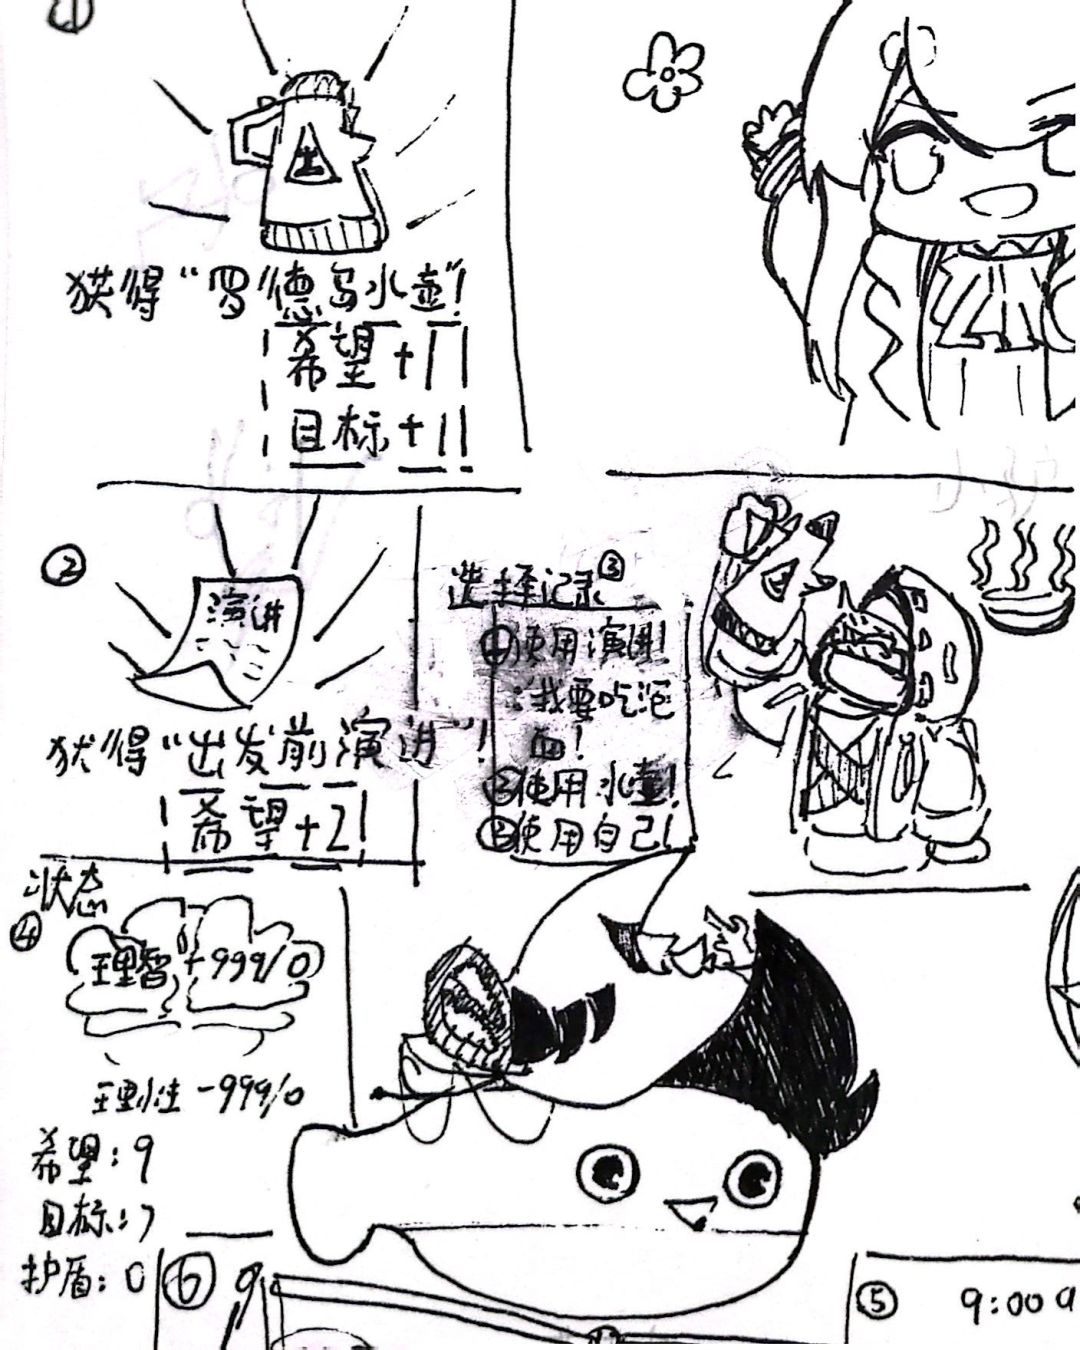 ①
获得“罗德岛水壶”!
希望+1
目标+1
②
演进
获得“出发前演进”!
希望+2
选择记录③
①使用演进!
:我要吃泡
面!
②使用水壶!
③使用自己!
状态
④
理智+999/0
理性-999/0
希望:9
目标:7
护盾:0
⑥
⑤
9:00